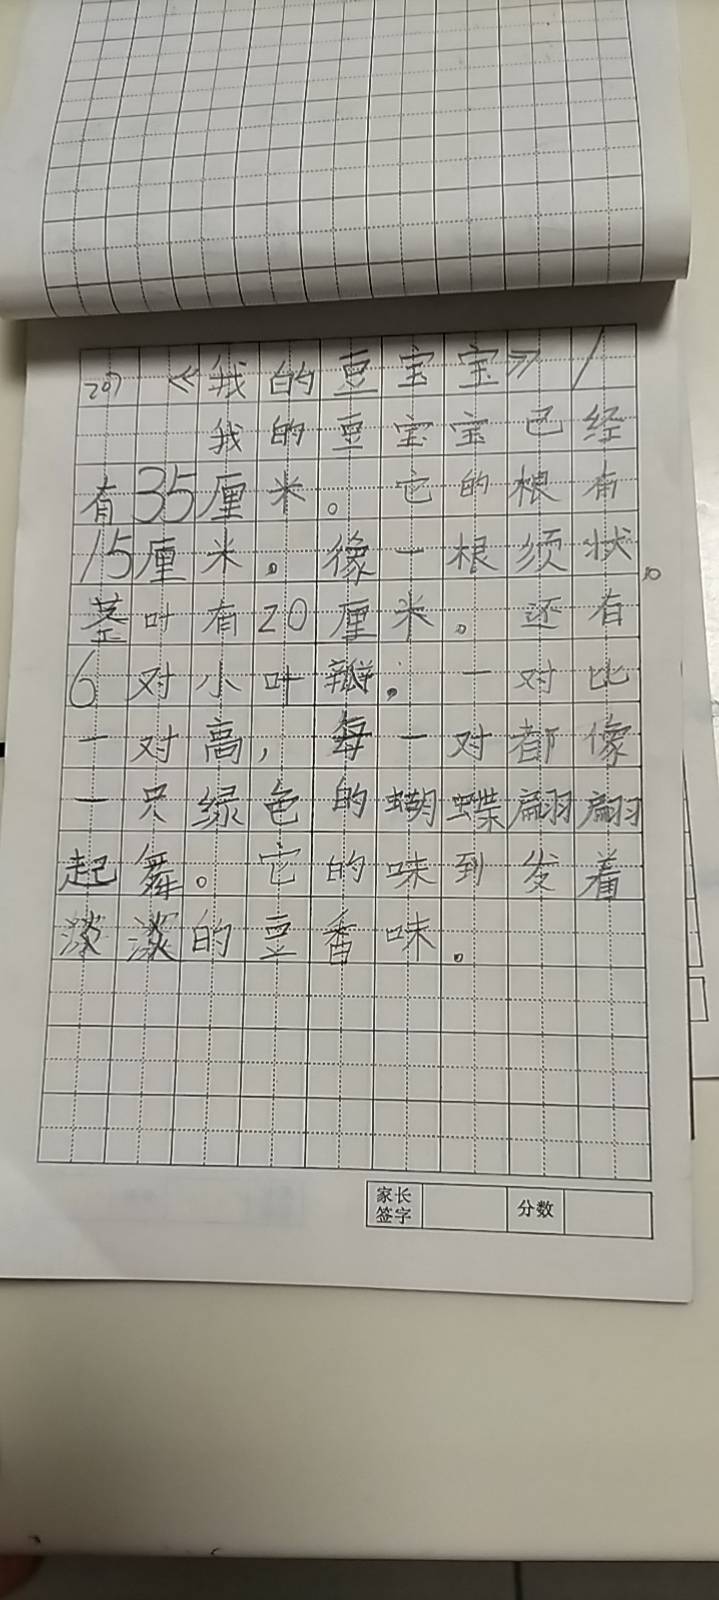 207 《我的豆宝宝》/
我的豆宝宝已经
有35厘米。它的根有
15厘米。像一根须状。
茎叶有20厘米。还有
6对小叶瓣。一对比
一对高，每一对都像
一只绿色的蝴蝶翩翩
起舞。它的味到发着
淡淡的豆香味。
家长签字
分数